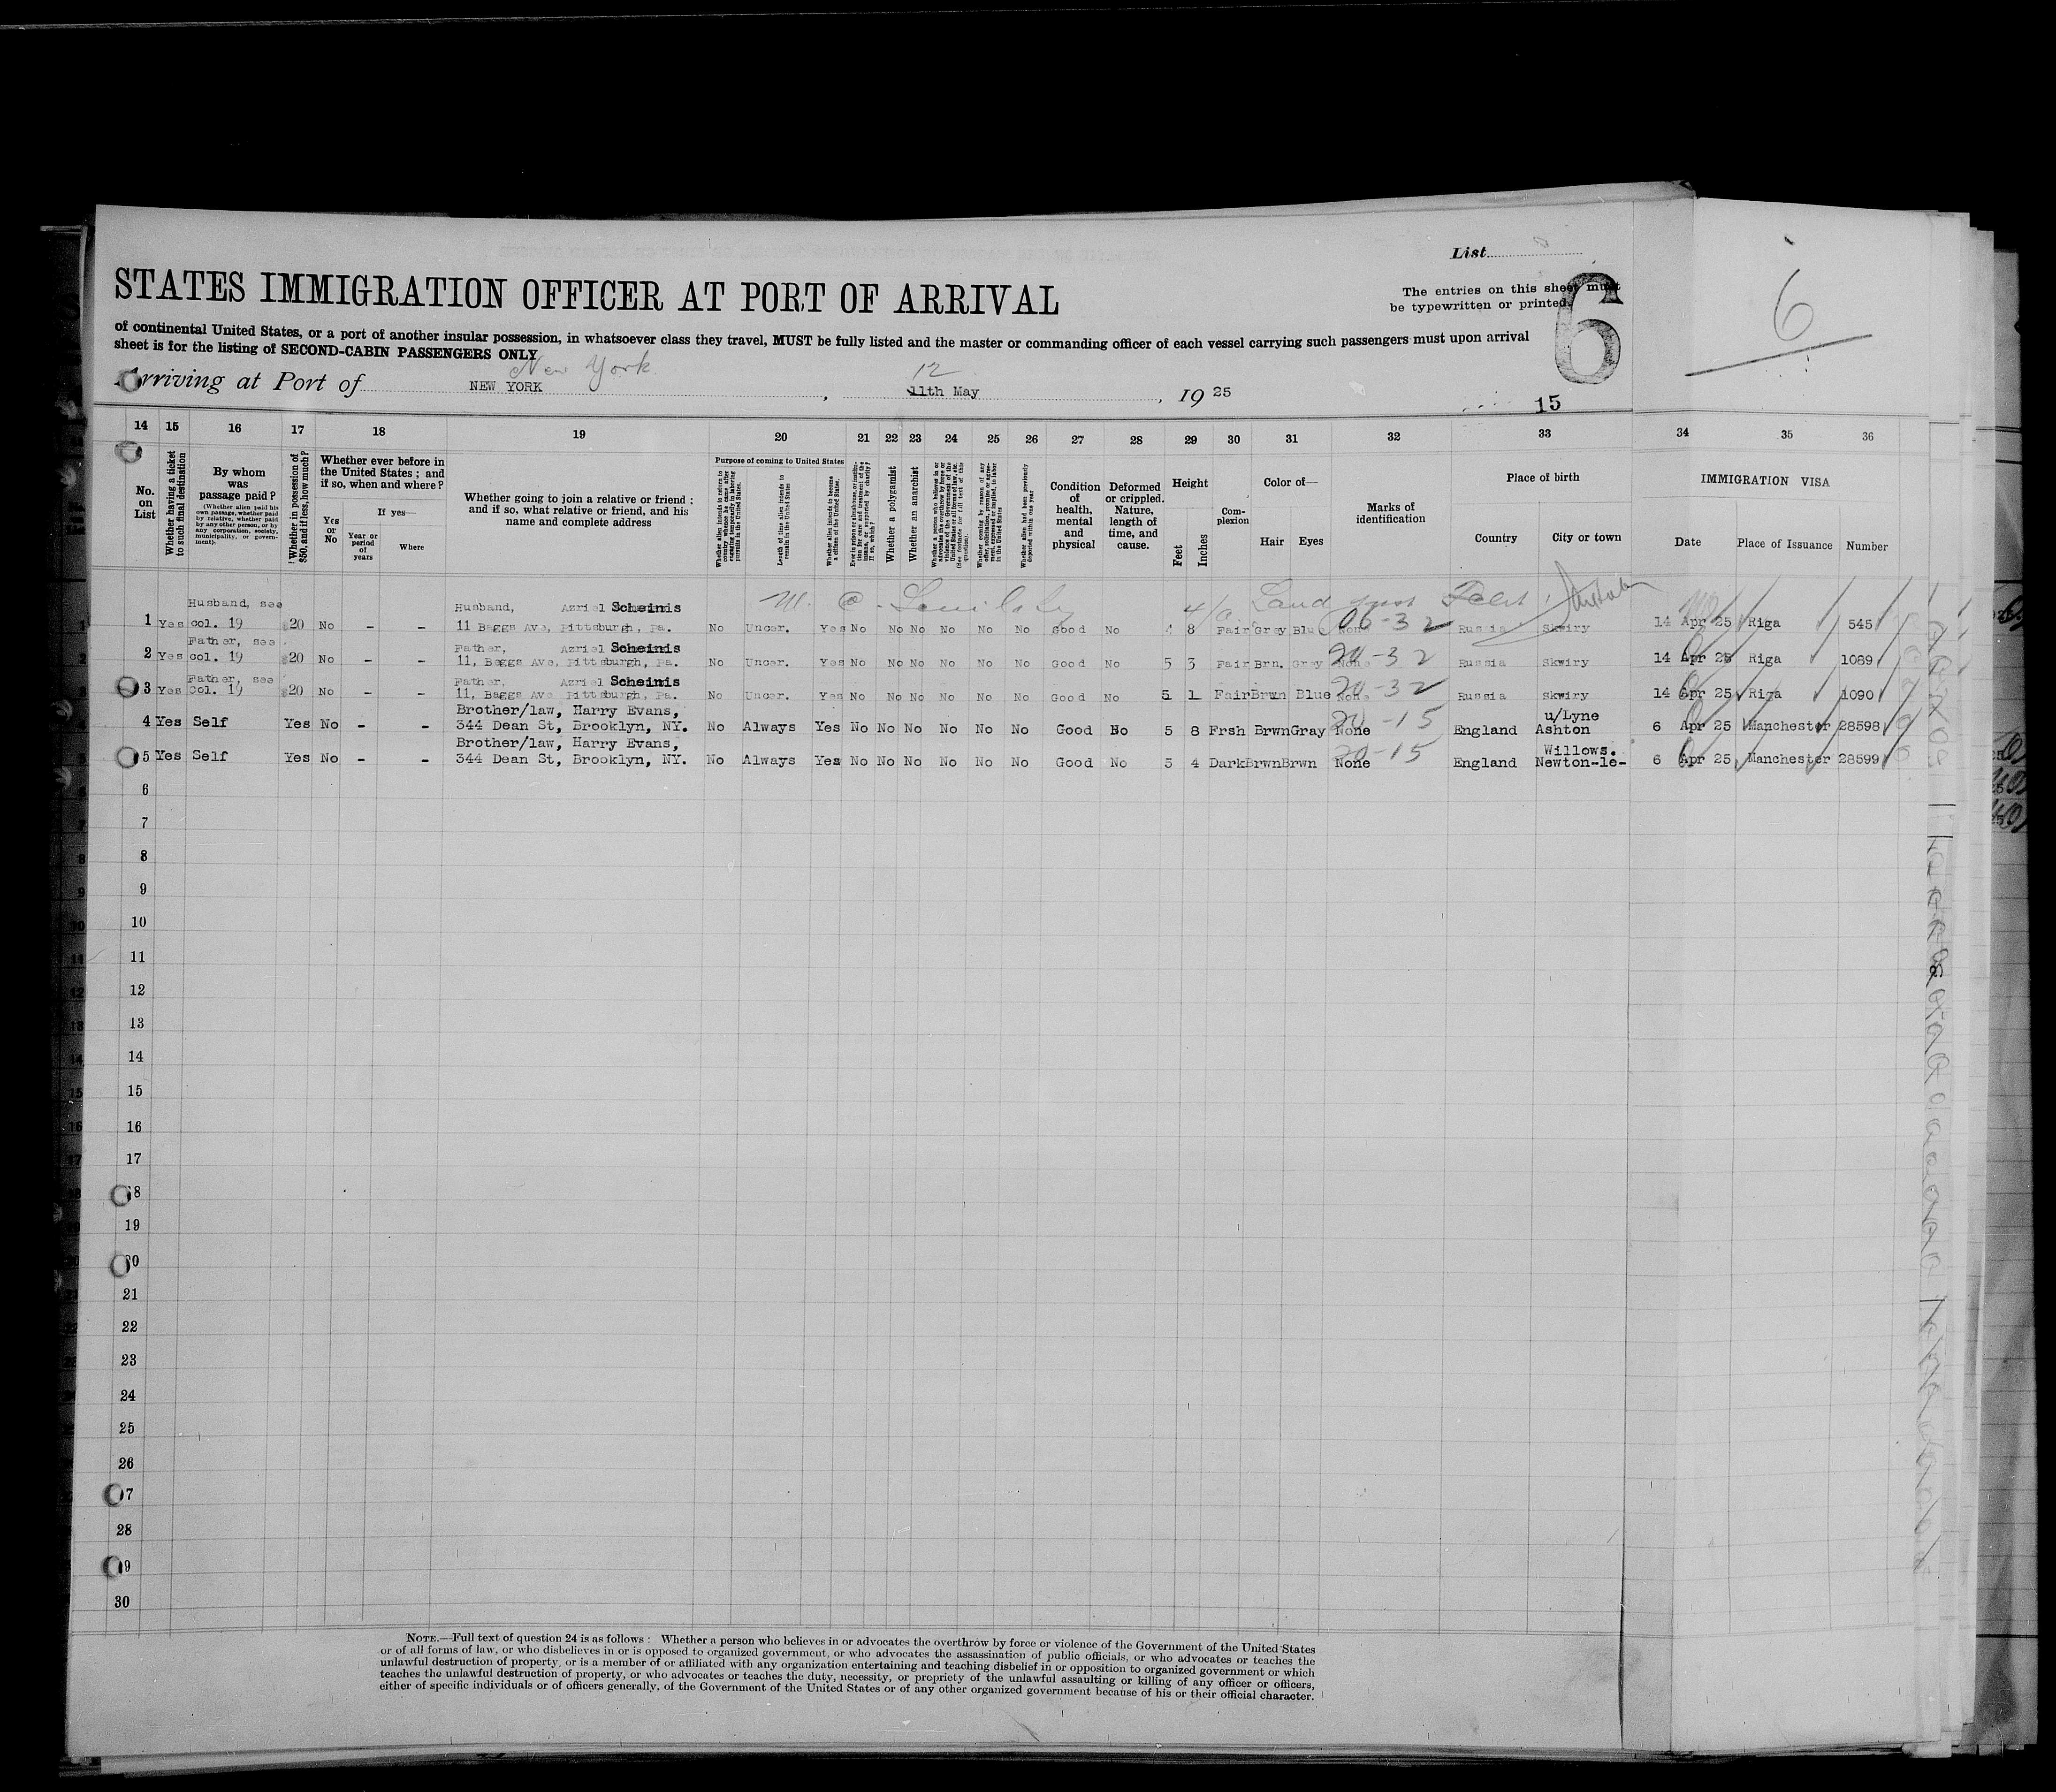 List
STATES IMMIGRATION OFFICER AT PORT OF ARRIVAL
The entries on this sheet must
be typewritten or printed.
6
6
of continental United States, or a port of another insular possession, in whatsoever class they travel, MUST be fully listed and the master or commanding officer of each vessel carrying such passengers must upon arrival
sheet is for the listing of SECOND-CABIN PASSENGERS ONLY
New York
12
Arriving at Port of NEW YORK, 11th May, 19 25
15
14 15 16 17 18 19 20 21 22 23 24 25 26 27 28 29 30 31 32 33 34 35 36
No. on List
Whether having a ticket to such final destination
By whom was passage paid?
(Whether alien paid his own passage, whether paid by relative, whether paid by any other person, or by any corporation, society, municipality, or government).
Whether in possession of $50, and if less, how much?
Whether ever before in the United States; and if so, when and where?
Yes or No
If yes—
Year or period of years
Where
Whether going to join a relative or friend; and if so, what relative or friend, and his name and complete address
Purpose of coming to United States
Whether alien intends to return to country whence he came after engaging temporarily in laboring pursuits in the United States.
Length of time alien intends to remain in the United States
Whether alien intends to become a citizen of the United States.
Whether a polygamist
Whether an anarchist
Whether alien had been previously deported within one year
Condition of health, mental and physical
Deformed or crippled. Nature, length of time, and cause.
Height
Feet
Inches
Complexion
Color of—
Hair
Eyes
Marks of identification
Place of birth
Country
City or town
IMMIGRATION VISA
Date
Place of Issuance
Number
Husband, see Husband, Azriel Scheinis
1 Yes col. 19 $20 No - - 11 Baggs Ave, Pittsburgh, Pa. No Uncer. Yes No No No No No No Good No 4 8 Fair Grey Blu None 06-32 Russia Skwiry 14 Apr 25 Riga 545
Father, see Father, Azriel Scheinis
2 Yes col. 19 $20 No - - 11, Baggs Ave, Pittsburgh, Pa. No Uncer. Yes No No No No No No Good No 5 3 Fair Brn. Grey None 20-32 Russia Skwiry 14 Apr 25 Riga 1089
Father, see Father, Azriel Scheinis
3 Yes Col. 19 $20 No - - 11, Baggs Ave Pittsburgh, Pa. No Uncer. Yes No No No No No No Good No 5 1 Fair Brwn Blue None 20-32 Russia Skwiry 14 Apr 25 Riga 1090
Brother/law, Harry Evans, u/Lyne
4 Yes Self Yes No - - 344 Dean St, Brooklyn, NY. No Always Yes No No No No No No Good No 5 8 Frsh Brwn Gray None 20-15 England Ashton 6 Apr 25 Manchester 28598
Brother/law, Harry Evans, Willows.
5 Yes Self Yes No - - 344 Dean St, Brooklyn, NY. No Always Yes No No No No No No Good No 5 4 Dark Brwn Brwn None 20-15 England Newton-le- 6 Apr 25 Manchester 28599
6
7
8
9
10
11
12
13
14
15
16
17
18
19
20
21
22
23
24
25
26
27
28
29
30
NOTE.—Full text of question 24 is as follows: Whether a person who believes in or advocates the overthrow by force or violence of the Government of the United States
or of all forms of law, or who disbelieves in or is opposed to organized government, or who advocates the assassination of public officials, or who advocates or teaches the
unlawful destruction of property, or is a member of or affiliated with any organization entertaining and teaching disbelief in or opposition to organized government or which
teaches the unlawful destruction of property, or who advocates or teaches the duty, necessity, or propriety of the unlawful assaulting or killing of any officer or officers,
either of specific individuals or of officers generally, of the Government of the United States or of any other organized government because of his or their official character.